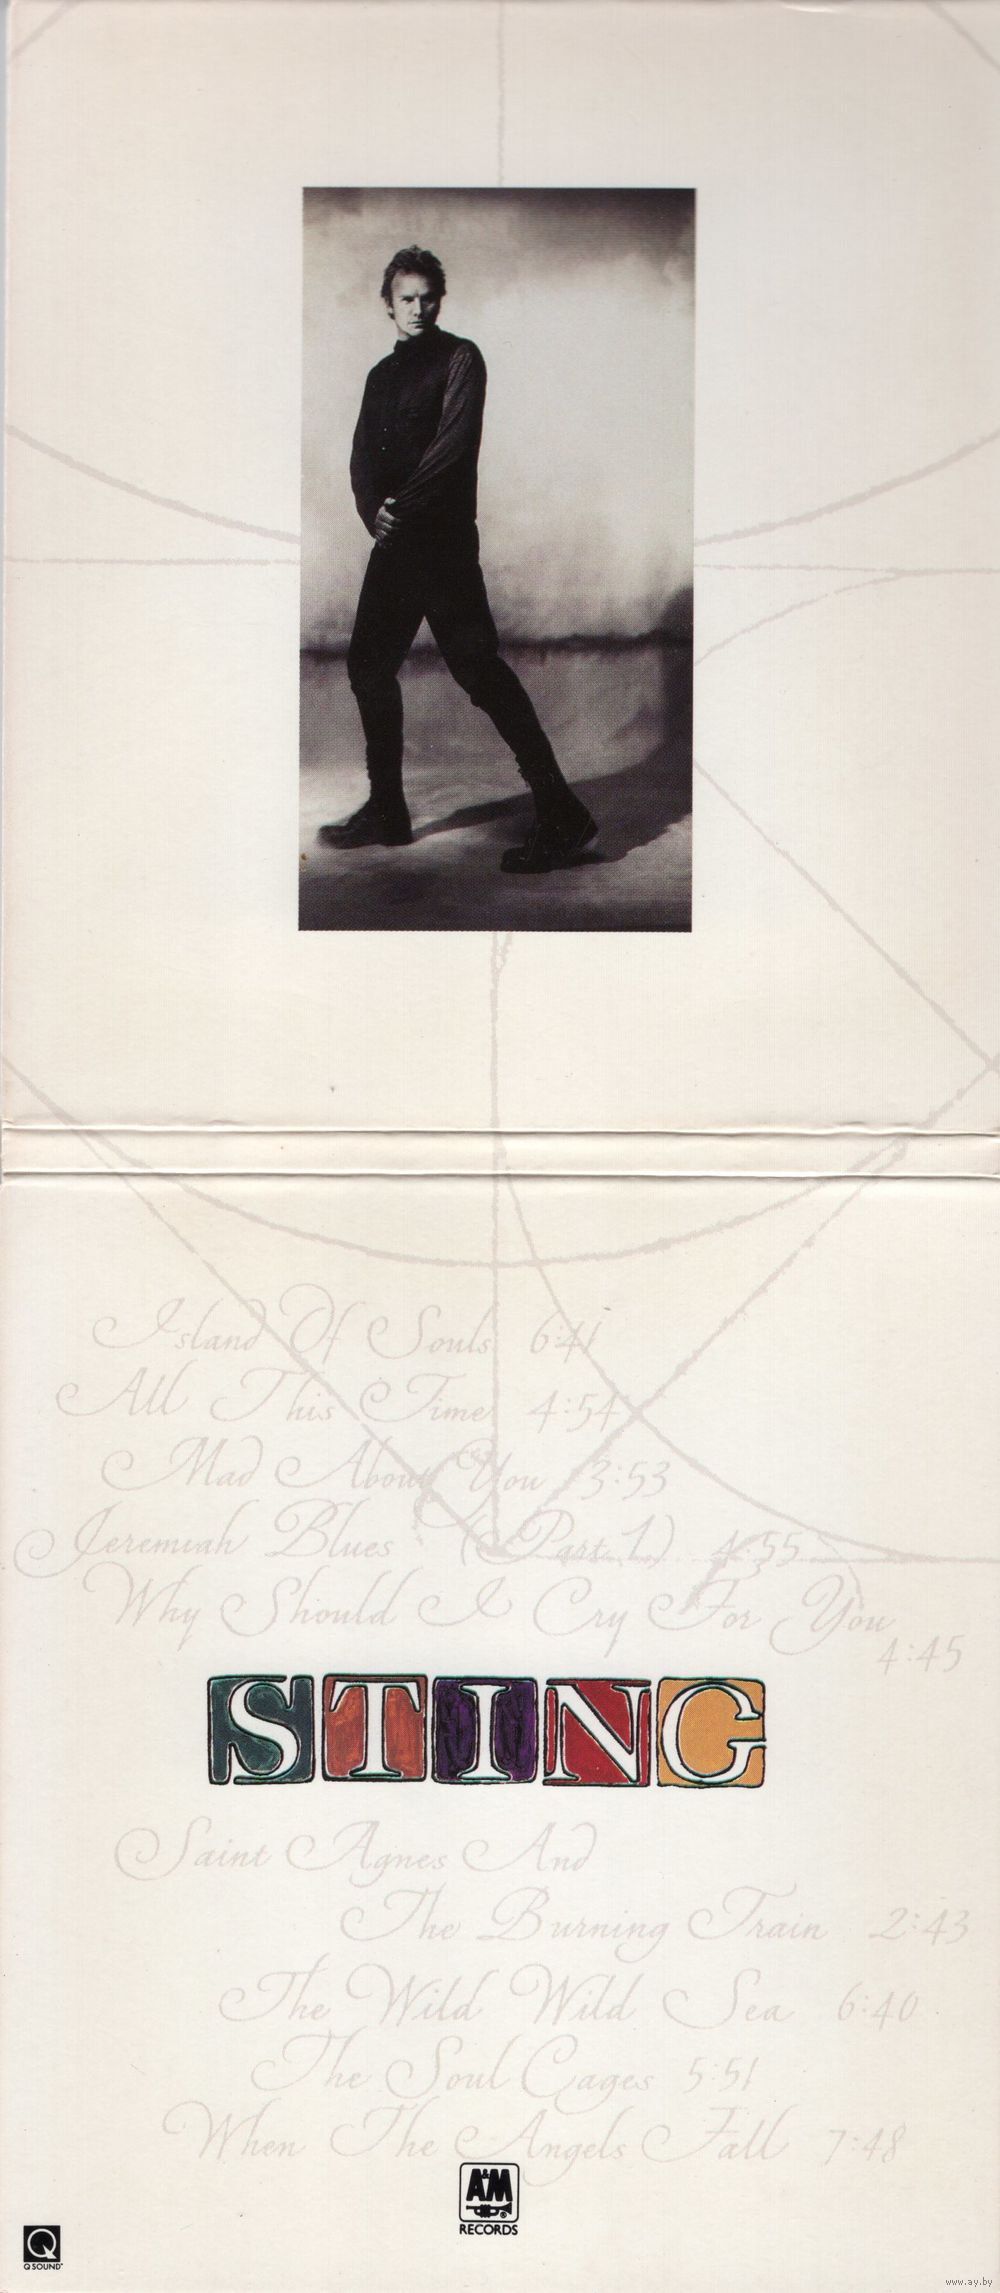 Island Of Souls 6:41
All This Time 4:54
Mad About You 3:53
Jeremiah Blues (Part 1) 4:55
Why Should I Cry For You
4:45
STING
Saint Agnes And
The Burning Train 2:43
The Wild Wild Sea 6:40
The Soul Cages 5:51
When The Angels Fall 7:48
A&M
RECORDS
Q
Q SOUND
www.ay.by